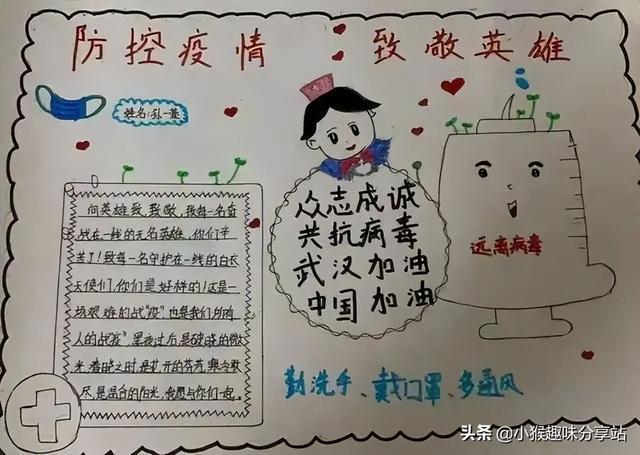 防控疫情 致敬英雄
姓名:孙一萱
向英雄致敬,致敬每一名奋
战在一线的无名英雄,你们辛
苦了!致每一名守护在一线的白衣
天使们,你们是好样的!这是一
场艰难的战"疫"也是我们所有
人的战"疫"黑夜过后,是破晓的微
光,春晓之时,是花开的芬芳,寒冬散
尽,是温合的阳光,我愿与你们一起。
众志成诚
共抗病毒
武汉加油
中国加油
远离病毒
勤洗手、戴口罩、多通风
头条 @小猴趣味分享站